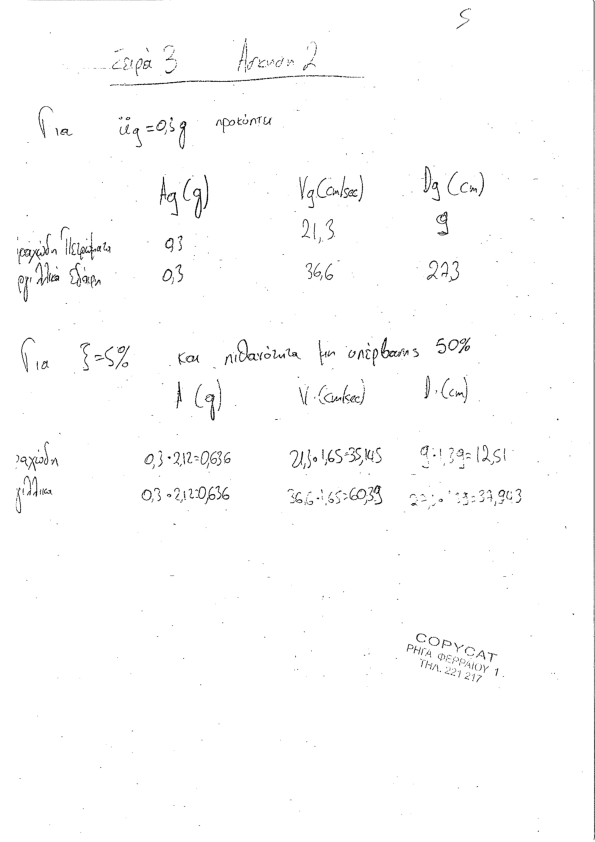 5
Σειρά 3 Άσκηση 2
Για üg=0,3g προκύπτει
Ag (g) Vg (cm/sec) Dg (cm)
ραχώδη Πετρώματα 0,3 21,3 9
ργιλλικά Εδάφη 0,3 36,6 27,3
Για ξ=5% και πιθανότητα μη υπέρβασης 50%
A (g) V (cm/sec) D (cm)
ραχώδη 0,3·2,12=0,636 21,3·1,65=35,145 9·1,39=12,51
γιλλικά 0,3·2,12=0,636 36,6·1,65=60,39 =37,943
COPYCAT
ΡΗΓΑ ΦΕΡΡΑΙΟΥ 1
ΤΗΛ. 221 217